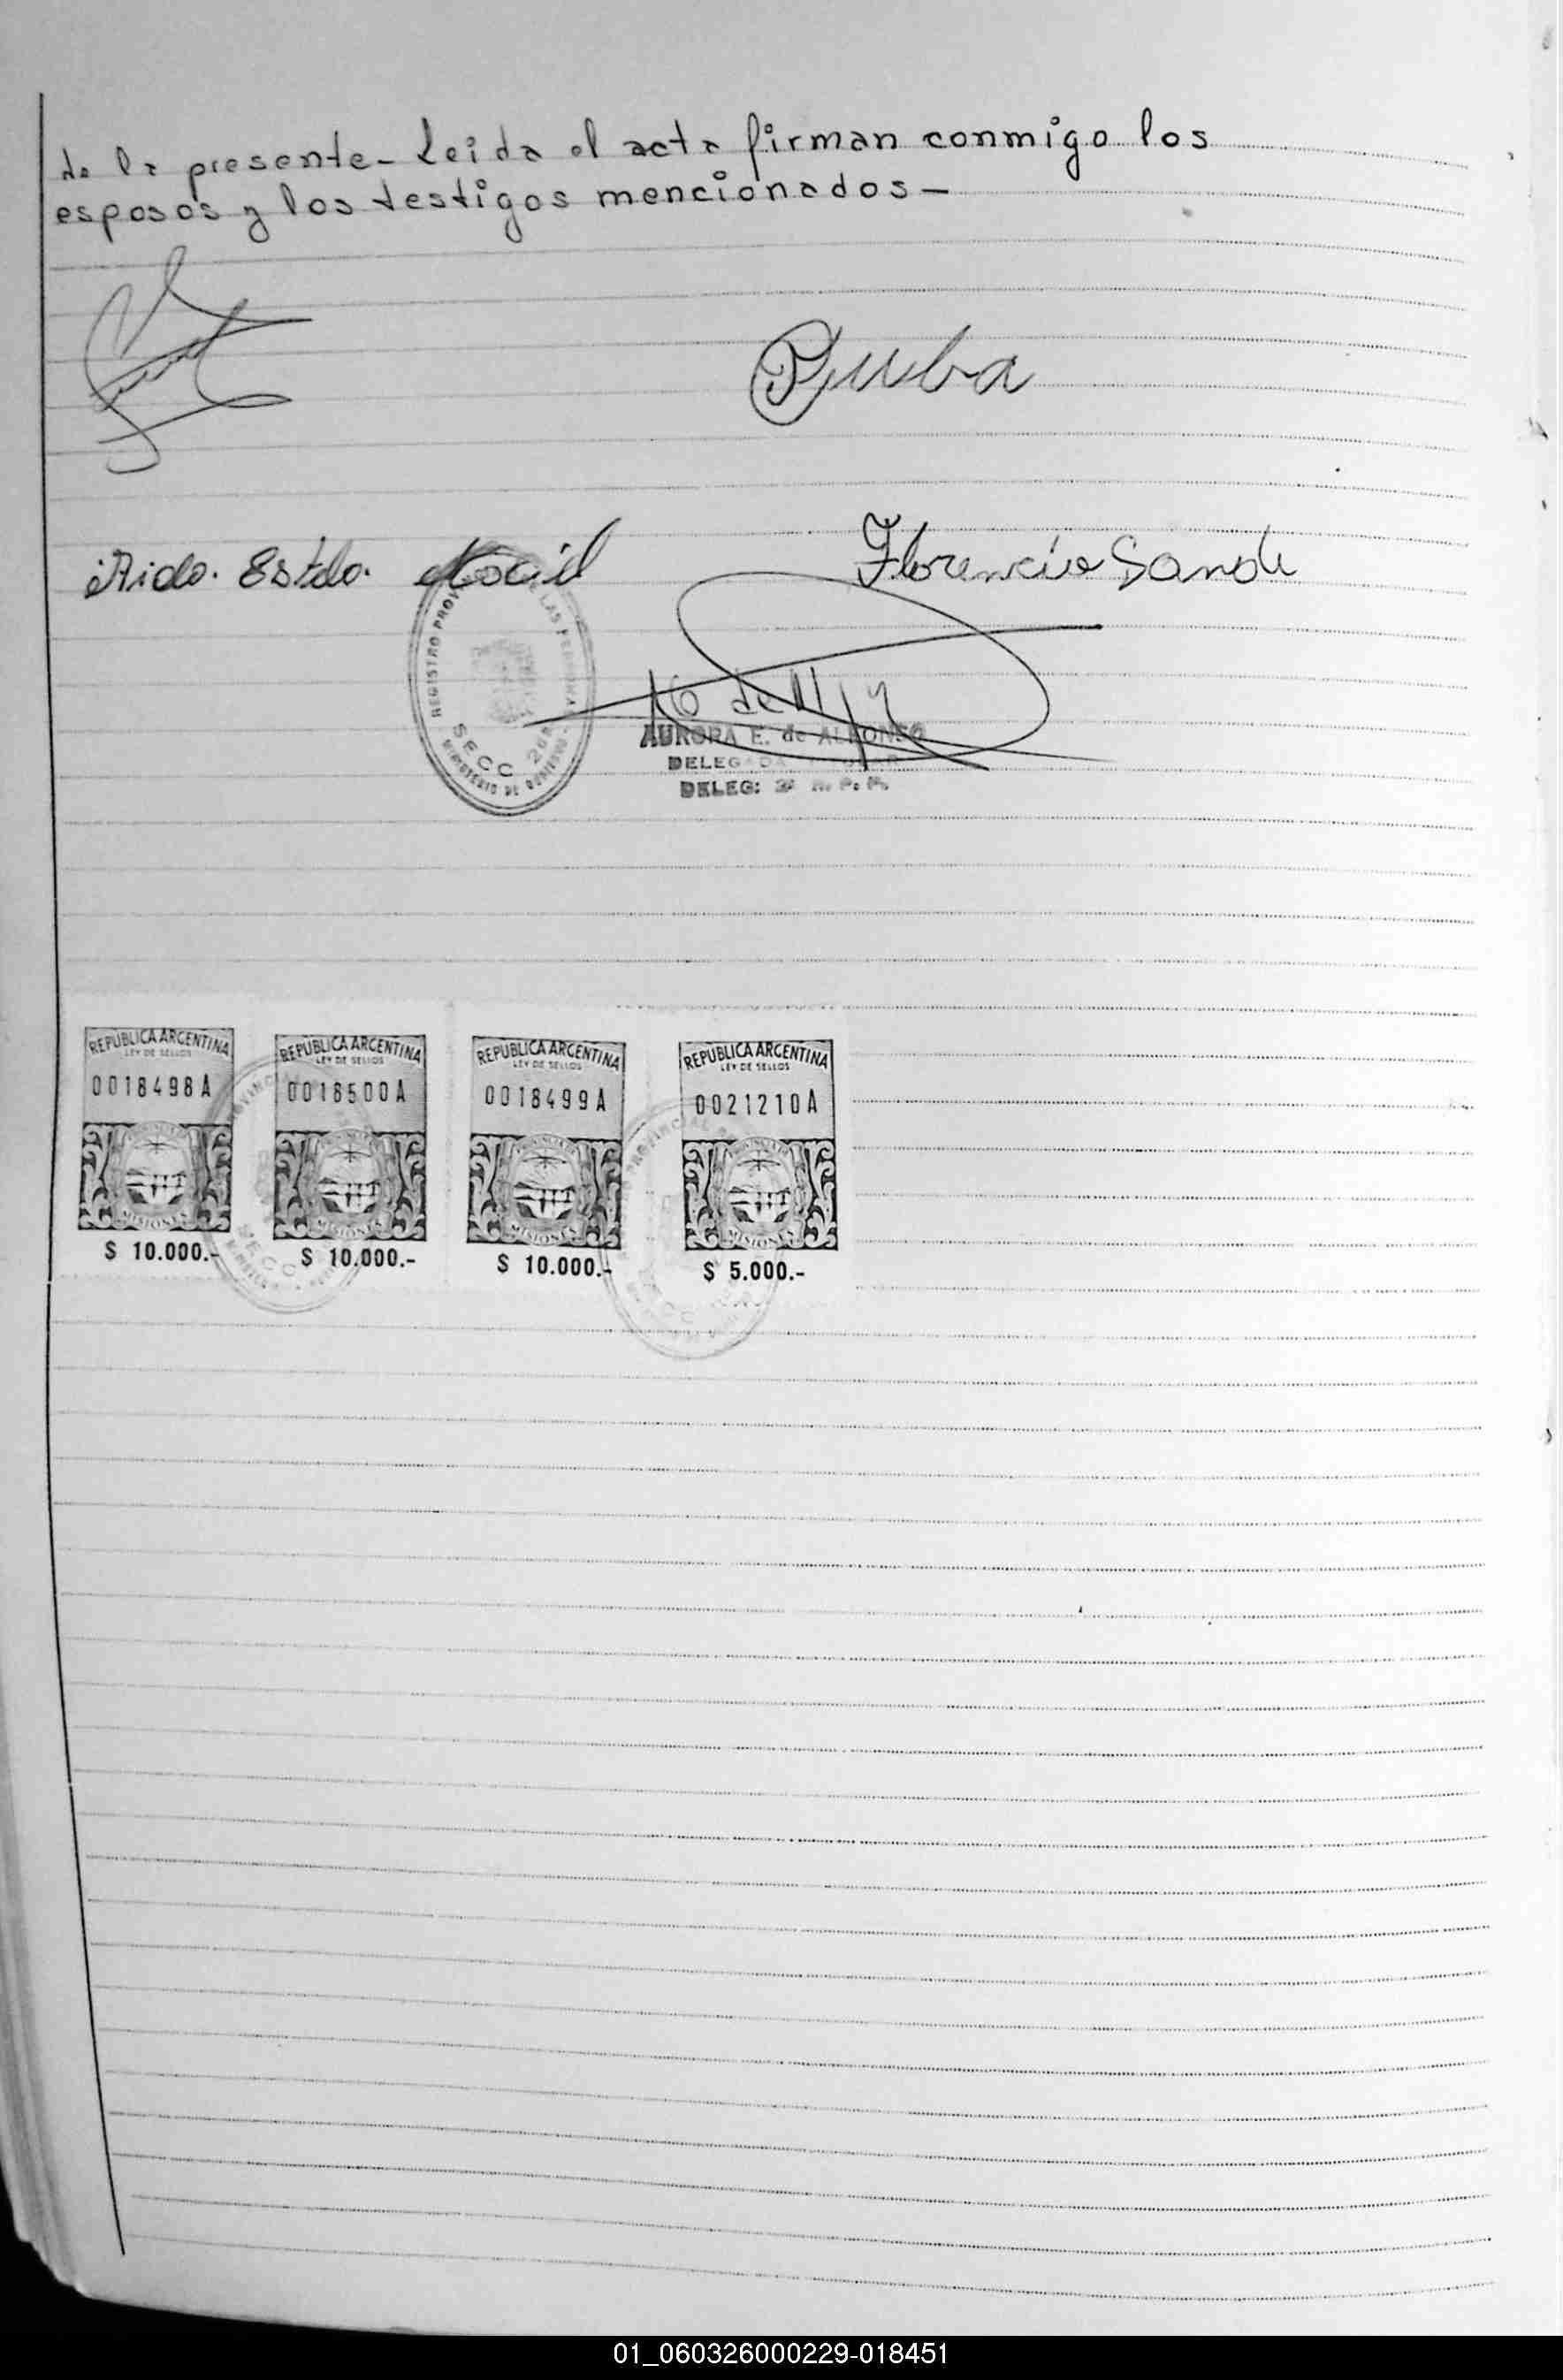 de la presente - Leida el acta firman conmigo los
esposos y los testigos mencionados -
Florencio
REGISTRO PROV DE LAS PERSONAS
SECC 2da
MINISTERIO DE GOBIERNO
AURORA E. de ALFONSO
DELEGADA
DELEG: 2ª R. P. P.
REPUBLICA ARGENTINA REPUBLICA ARGENTINA REPUBLICA ARGENTINA REPUBLICA ARGENTINA
LEY DE SELLOS LEY DE SELLOS LEY DE SELLOS LEY DE SELLOS
0018498A 0018500A 0018499A 0021210A
MISIONES MISIONES MISIONES MISIONES
$ 10.000.- $ 10.000.- $ 10.000.- $ 5.000.-
01_060326000229-018451